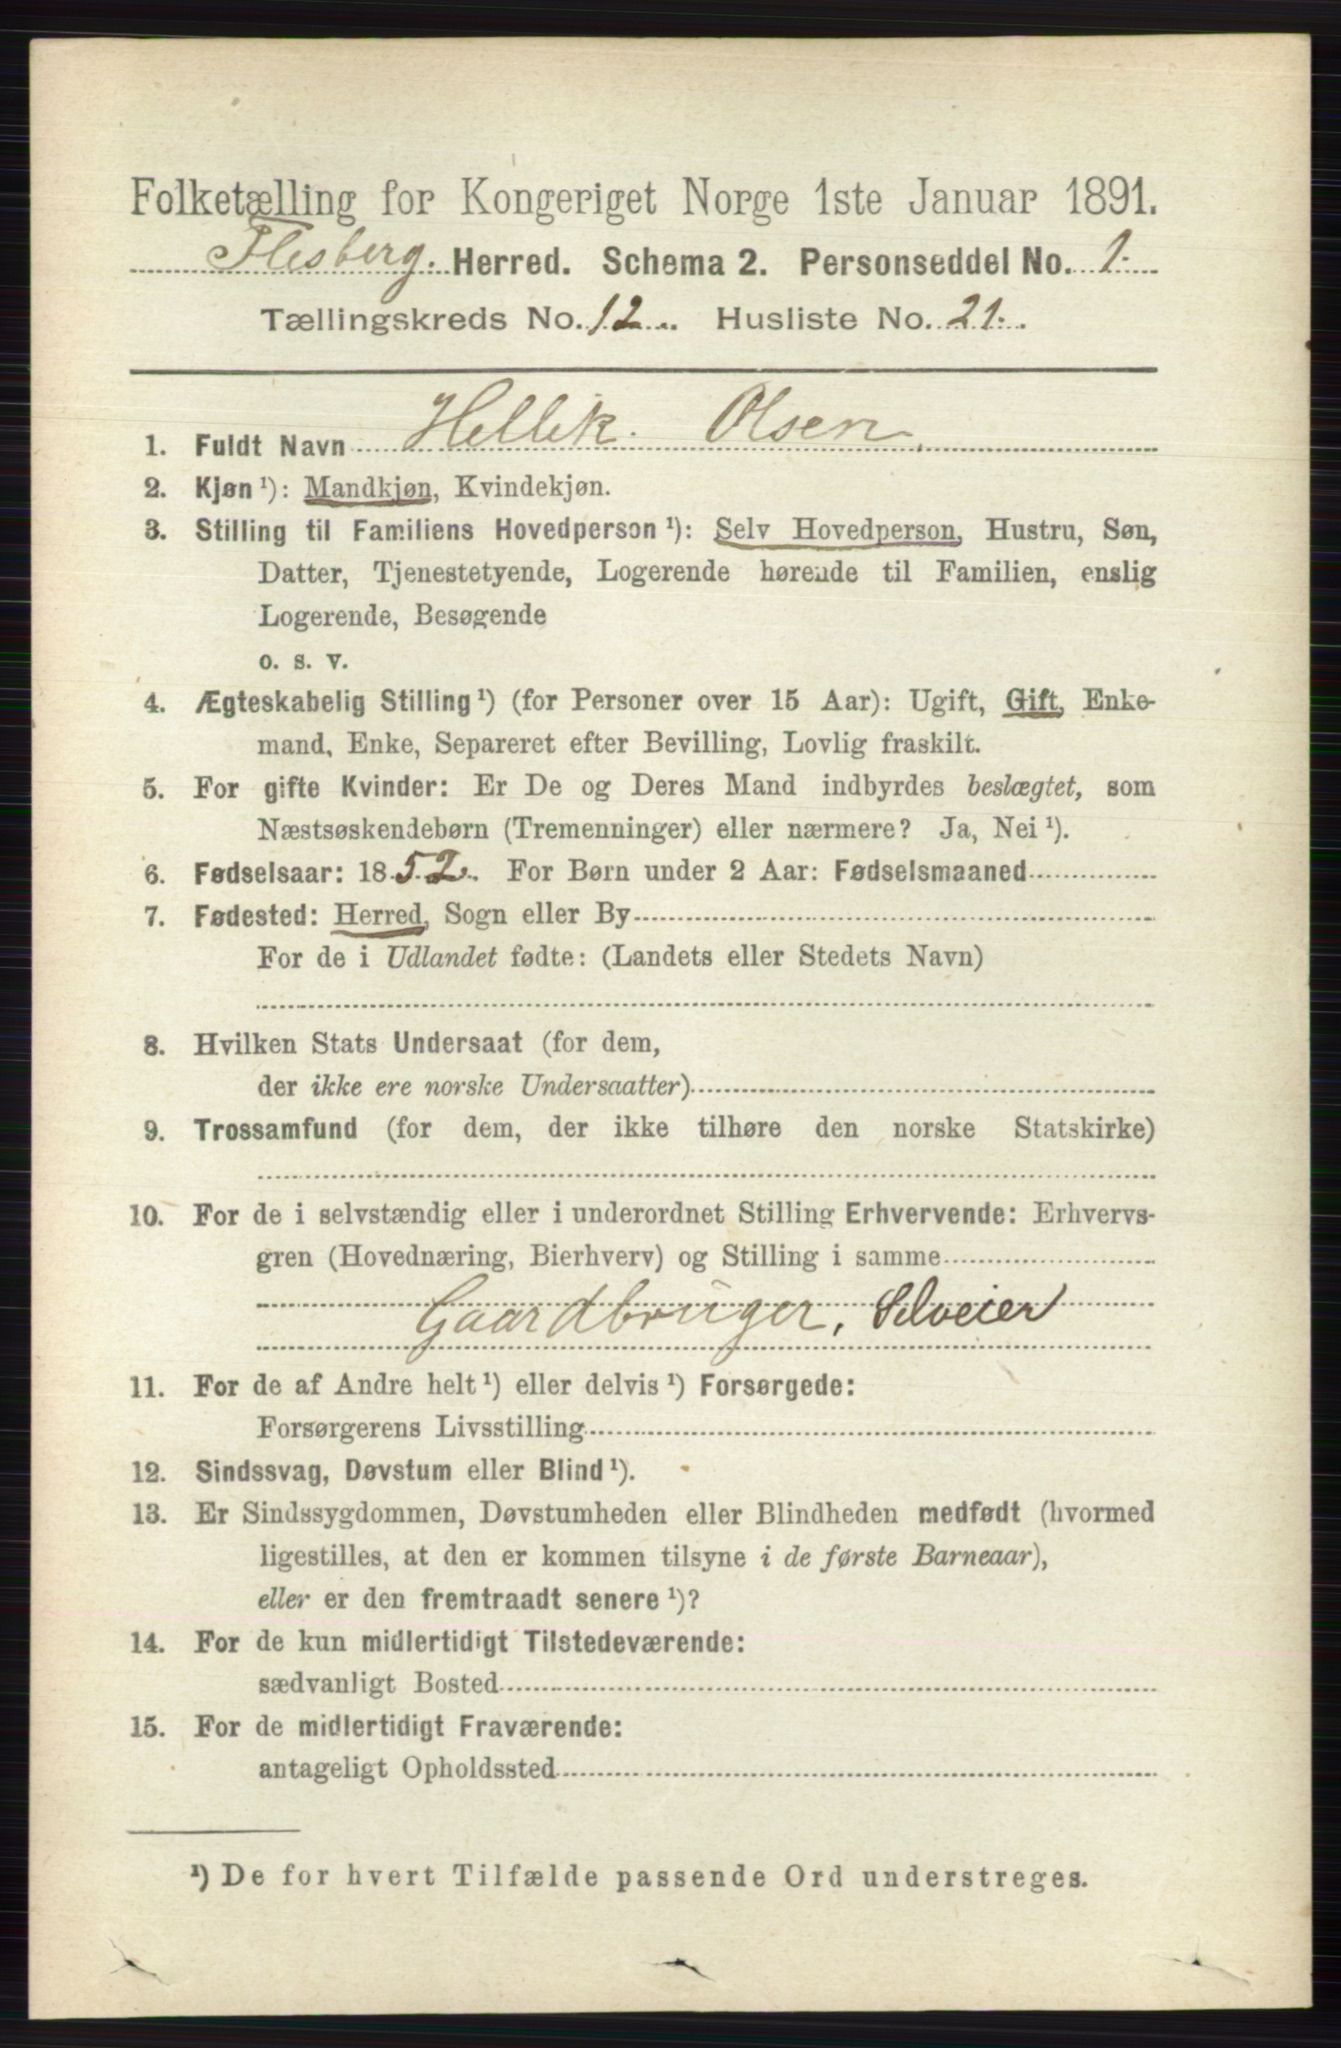 Folketælling for Kongeriget Norge 1ste Januar 1891.
Flesberg. Herred. Schema 2. Personseddel No. 1.
Tællingskreds No. 12. Husliste No. 21.
1. Fuldt Navn Hellik Olsen.
2. Kjøn ¹): Mandkjøn, Kvindekjøn.
3. Stilling til Familiens Hovedperson ¹): Selv Hovedperson, Hustru, Søn,
Datter, Tjenestetyende, Logerende hørende til Familien, enslig
Logerende, Besøgende
o. s. v.
4. Ægteskabelig Stilling ¹) (for Personer over 15 Aar): Ugift, Gift, Enke-
mand, Enke, Separeret efter Bevilling, Lovlig fraskilt.
5. For gifte Kvinder: Er De og Deres Mand indbyrdes beslægtet, som
Næstsøskendebørn (Tremenninger) eller nærmere? Ja, Nei ¹).
6. Fødselsaar: 1852. For Børn under 2 Aar: Fødselsmaaned
7. Fødested: Herred, Sogn eller By
For de i Udlandet fødte: (Landets eller Stedets Navn)
8. Hvilken Stats Undersaat (for dem,
der ikke ere norske Undersaatter)
9. Trossamfund (for dem, der ikke tilhøre den norske Statskirke)
10. For de i selvstændig eller i underordnet Stilling Erhvervende: Erhvervs-
gren (Hovednæring, Bierhverv) og Stilling i samme
Gaardbruger, Selveier
11. For de af Andre helt ¹) eller delvis ¹) Forsørgede:
Forsørgerens Livsstilling
12. Sindssvag, Døvstum eller Blind ¹).
13. Er Sindssygdommen, Døvstumheden eller Blindheden medfødt (hvormed
ligestilles, at den er kommen tilsyne i de første Barneaar),
eller er den fremtraadt senere ¹)?
14. For de kun midlertidigt Tilstedeværende:
sædvanligt Bosted
15. For de midlertidigt Fraværende:
antageligt Opholdssted
¹) De for hvert Tilfælde passende Ord understreges.